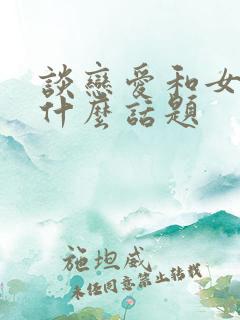 談戀愛和女
什麼話題
施坦威
未任同意禁止轉載